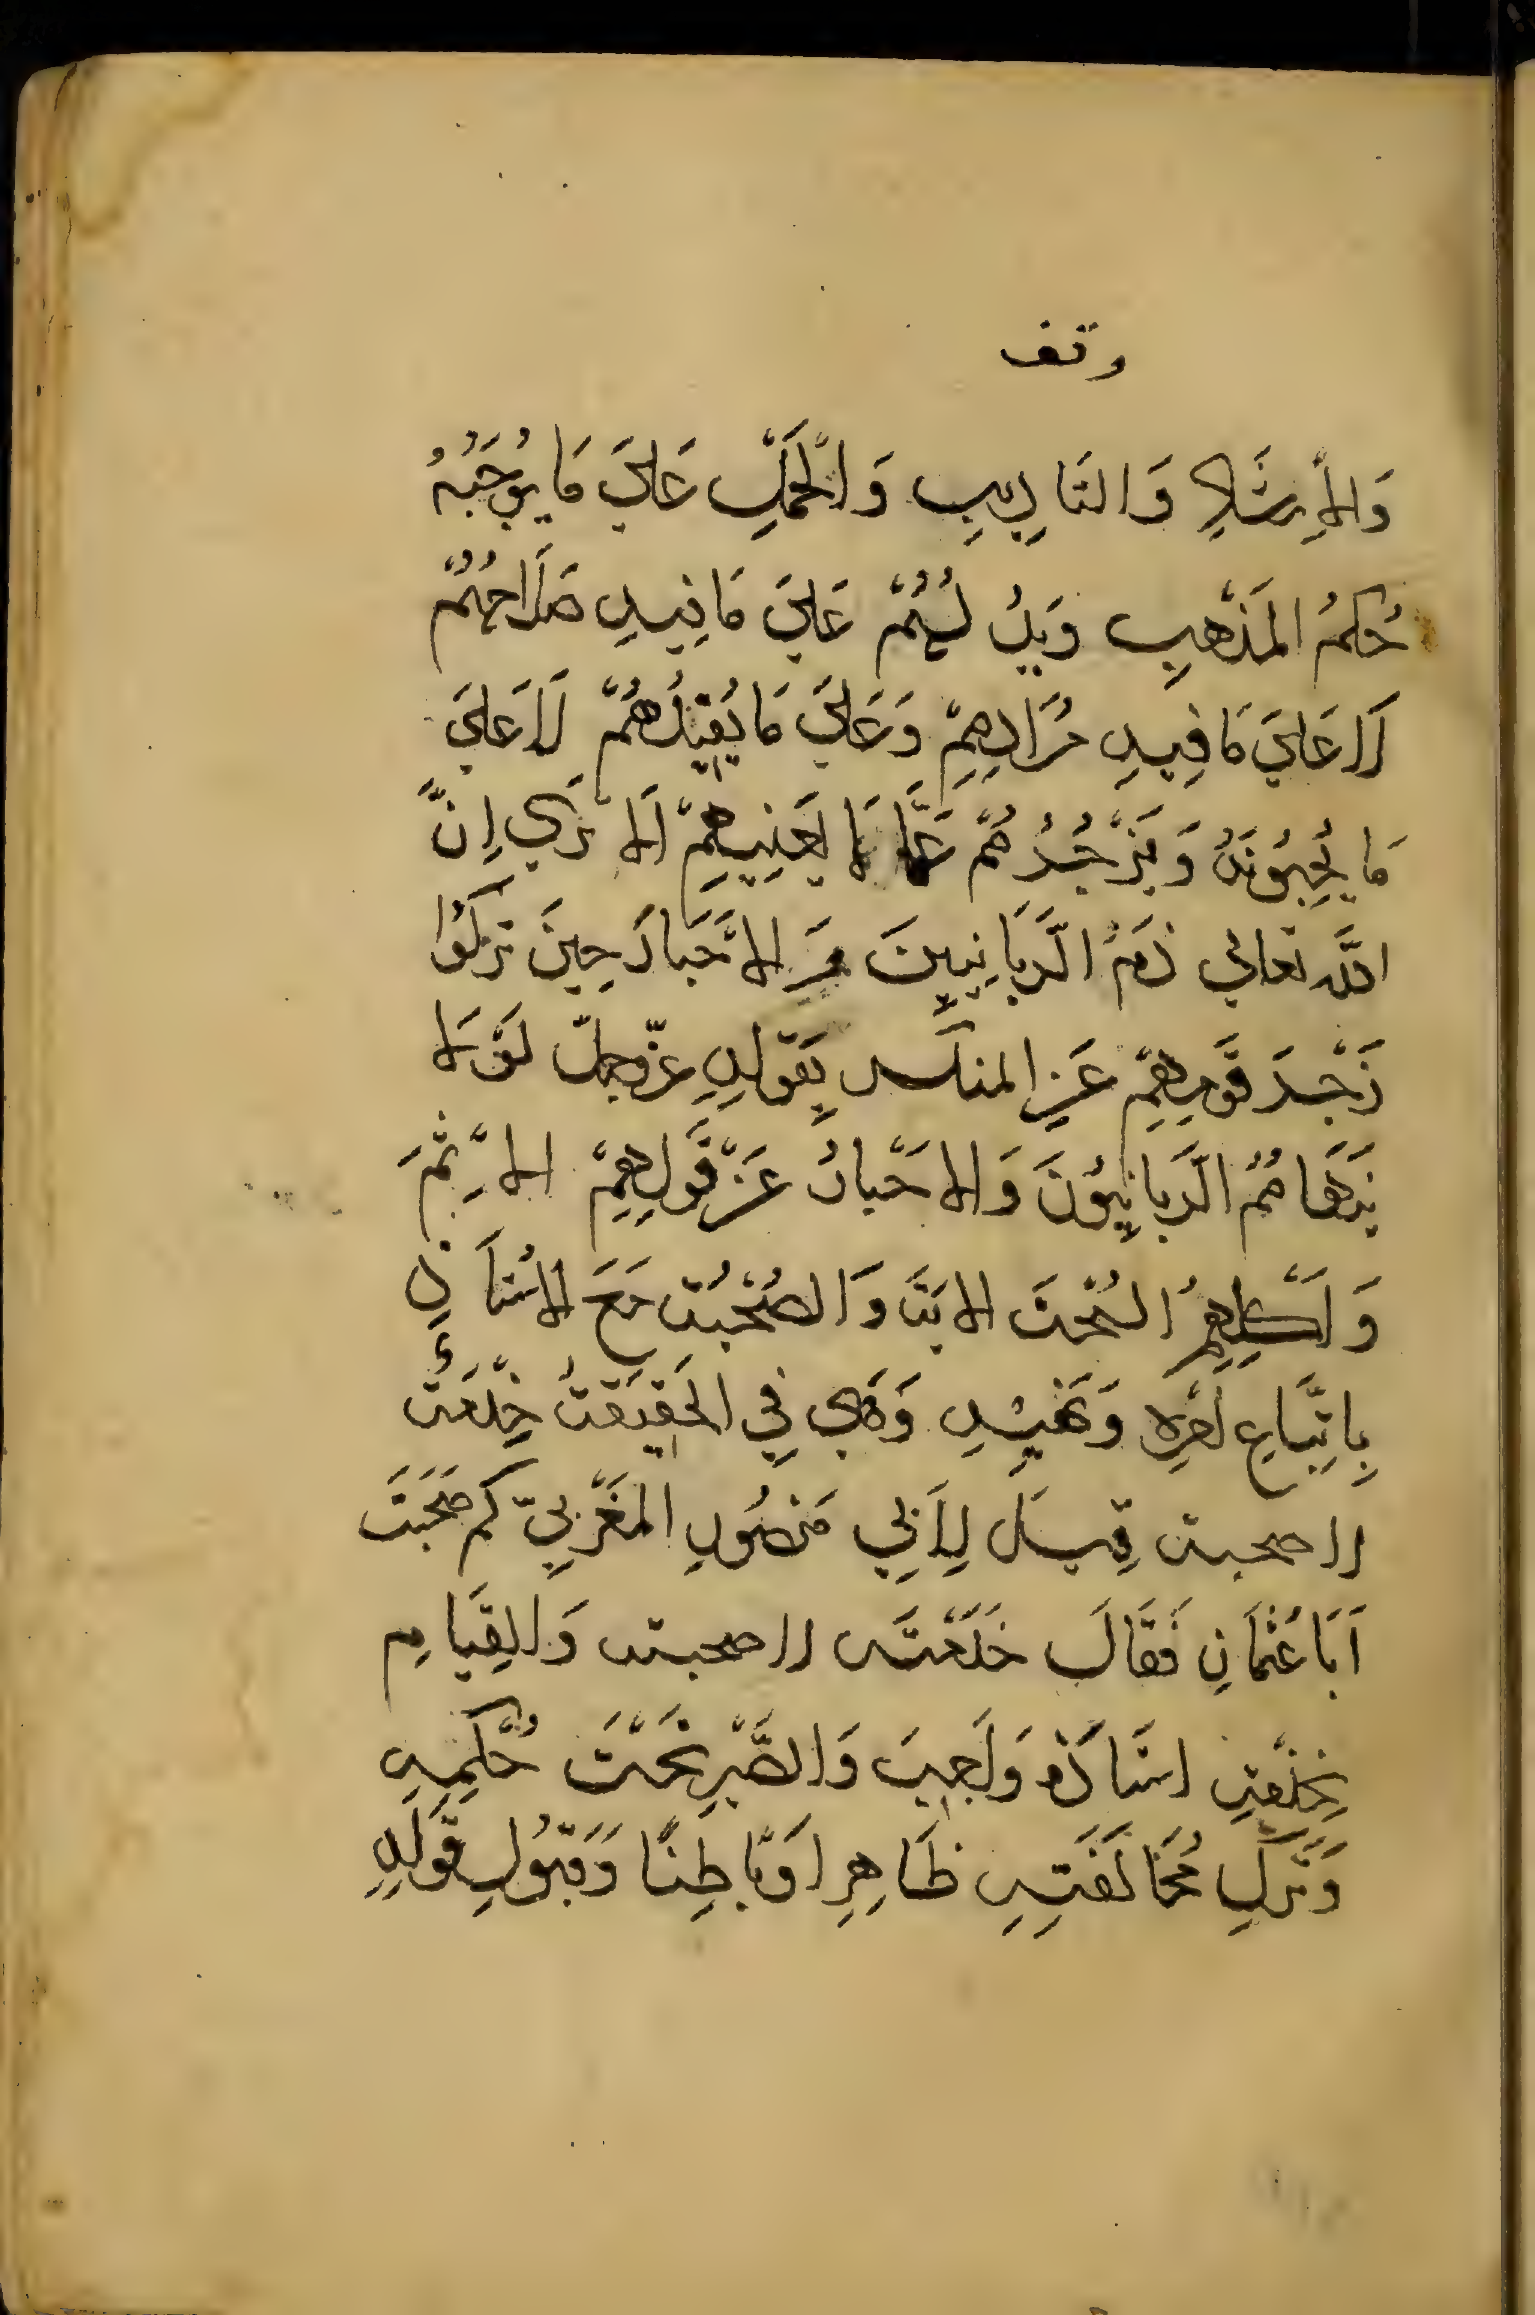 وقف
وَالاِرشَادِ وَالتَادِيبِ وَالْحَمْلِ عَلَيَ مَا يُوجَبُهُ
حُكمُ المَذْهبِ وَيَدُ لهُمْ عَلَيَ مَا فِيهِ صَلَاحهُمْ
لَا عَلَيَ مَا فِيهِ مُرَادِهِمْ وَعَلَيَ مَا يُفِيدُهُمْ لَا عَلَيَ
مَا يُحِبُونَهُ وَيَزْجُرُ هُمْ عَمَّا لَا يَعْنِيهِمْ اَلَا تَرَي اِنَّ
اللَّه تعالي ذمَّ الرَّبَانِيينَ وَالاَحْبَارَ حِينَ تركَوُا
زَجْرَ قَومِهِمْ عَنِ المنكر بِقَولِهِ عزّ وجلّ لَوْلَا
يَنهَاهُمُ الرَّبانِيُونَ وَالاَحْبارُ عَنْ قَولِهِمْ الاِثمَ
وَاَكلِهِمُ السُحْتَ الايَة وَالصُحْبَة مَعَ الاُستَاذِ
بِاتِبَاعِ اَمرِه وَنَهْيهِ وَهِي فِي الحَقِيقَةُ خِدْمَة
لا صحبة قِيلَ لِاَبِي مَنصُورِ المَغْربِيّ كَم صَحَبْتَ
اَبَا عُثمَانِ فَقَالَ خَدَمْتَه لا صحبة وَالقِيَامِ
بِخدْمَةِ استَاذه وَاجِبَ وَالصَّبْرِ تحْتَ حُكمِهِ
وَتَركِ مُخَالَفَتِهِ ظَاهِرِا وَبَاطِنًا وَقبُولِ قَولِهِ